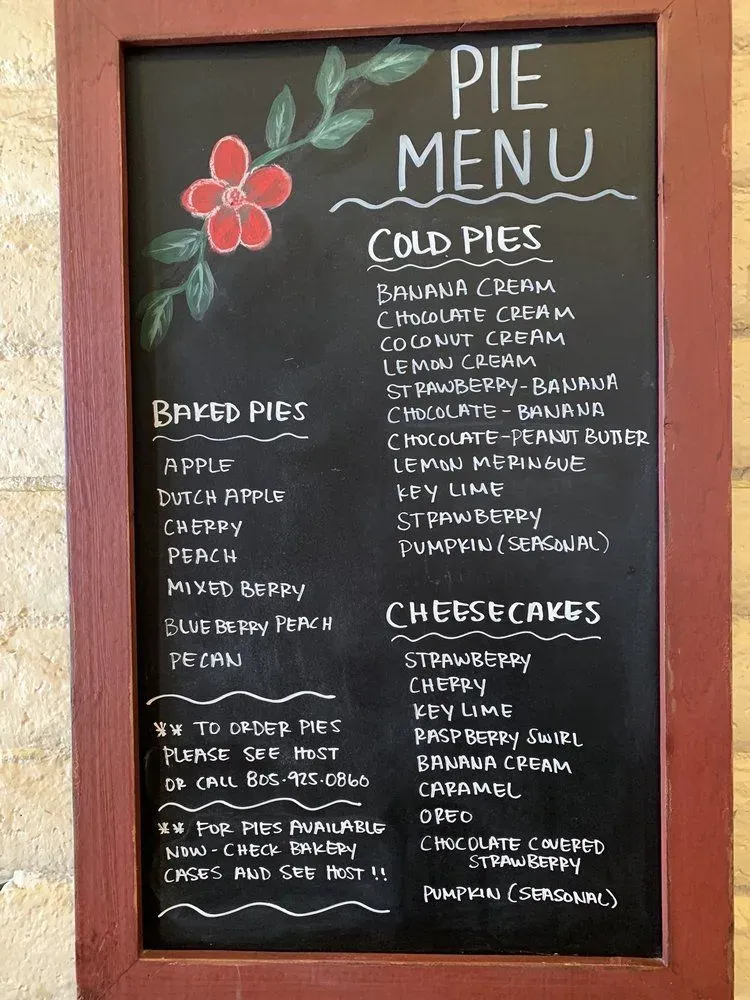 PIE
MENU
COLD PIES
BANANA CREAM
CHOCOLATE CREAM
COCONUT CREAM
LEMON CREAM
STRAWBERRY-BANANA
CHOCOLATE-BANANA
CHOCOLATE-PEANUT BUTTER
LEMON MERINGUE
KEY LIME
STRAWBERRY
PUMPKIN (SEASONAL)
BAKED PIES
APPLE
DUTCH APPLE
CHERRY
PEACH
MIXED BERRY
BLUEBERRY PEACH
PECAN
** TO ORDER PIES
PLEASE SEE HOST
OR CALL 805.925.0860
** FOR PIES AVAILABLE
NOW - CHECK BAKERY
CASES AND SEE HOST !!
CHEESECAKES
STRAWBERRY
CHERRY
KEY LIME
RASPBERRY SWIRL
BANANA CREAM
CARAMEL
OREO
CHOCOLATE COVERED
STRAWBERRY
PUMPKIN (SEASONAL)